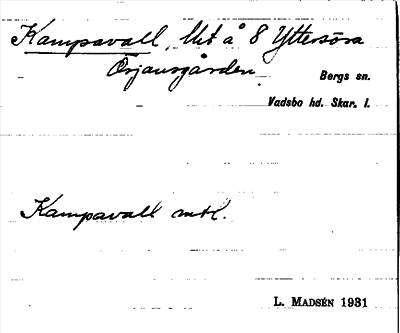 Kampavall, lht å 8 Yttersöra
Örjansgården
Bergs sn.
Vadsbo hd. Skar. l.
Kampavall mtl.
L. MADSÉN 1931